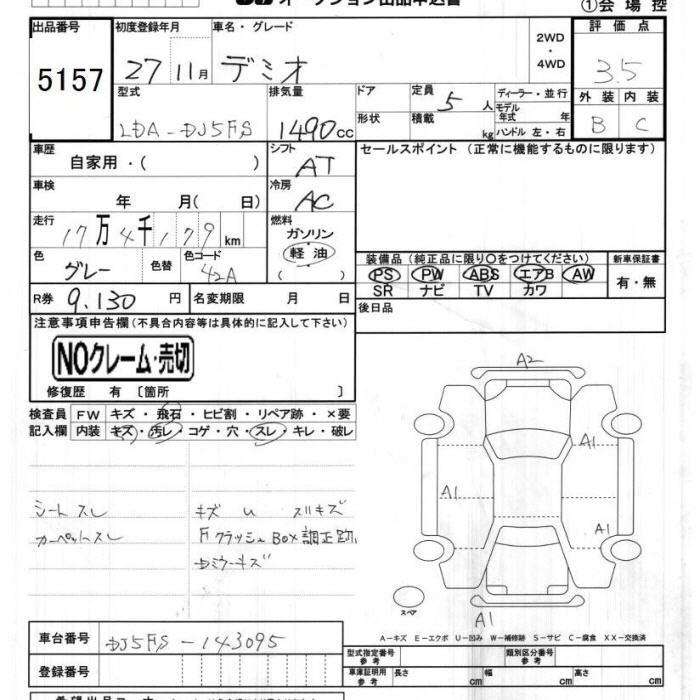 ①会 場 控
出品番号 初度登録年月 車名・グレード 2WD・4WD 評 価 点
5157 27 11月 デミオ 3.5
型式 排気量 ドア 定員 5 人 ディーラー・並行 外 装 内 装
LDA-DJ5FS 1490cc 形状 積載 kg モデル年式 年 ハンドル 左・右 B C
車歴 シフト セールスポイント (正常に機能するものに限ります)
自家用・( ) AT
車検 冷房
年 月( 日) AC
走行 燃料
17万4千179km ガソリン
色 色替 色コード 軽 油 装備品 (純正品に限り○をつけてください) 新車保証書
グレー 42A ( ) PS PW ABS エアB AW 有・無
SR ナビ TV カワ
R券 9.130 円 名変期限 月 日 後日品
注意事項申告欄(不具合内容等は具体的に記入して下さい)
NOクレーム・売切
修復歴 有 〔箇所 〕
A2
検査員 FW キズ・飛石・ヒビ割・リペア跡・×要
記入欄 内装 キズ・汚レ・コゲ・穴・スレ・キレ・破レ
A1
A1
シートスレ キズ U スリキズ
A1
カーペットスレ F クラッシュBOX調正跡
ドミラーキズ
スペア
A1
A-キズ E-エクボ U-凹み W-補修跡 S-サビ C-腐食 XX-交換済
車台番号 DJ5FS-143095
型式指定番号 参考 類別区分番号 参考
登録番号 車庫証明用 参考 長さ cm 幅 cm 高さ cm